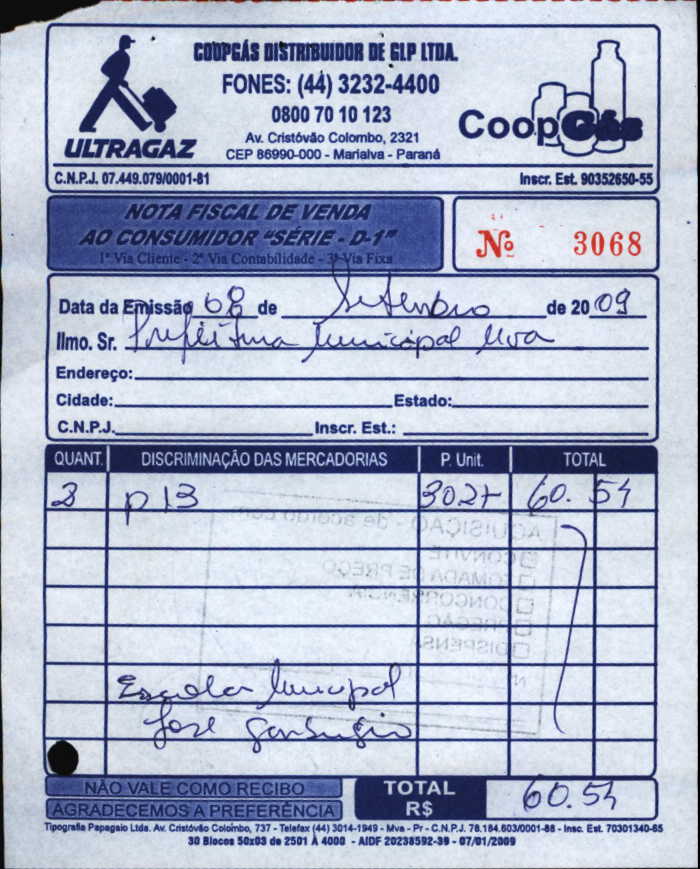 COOPGÁS DISTRIBUIDOR DE GLP LTDA.
FONES: (44) 3232-4400
0800 70 10 123
Av. Cristóvão Colombo, 2321
CEP 86990-000 - Marialva - Paraná
ULTRAGAZ
CoopGás
C.N.P.J. 07.449.079/0001-81
Inscr. Est. 90352650-55
NOTA FISCAL DE VENDA
AO CONSUMIDOR "SÉRIE - D-1"
1ª Via Cliente - 2ª Via Contabilidade - 3ª Via Fixa
Nº 3068
Data da Emissão 08 de Setembro de 2009
Ilmo. Sr. Prefeitura Municipal Mva
Endereço:
Cidade: Estado:
C.N.P.J. Inscr. Est.:
QUANT. DISCRIMINAÇÃO DAS MERCADORIAS P. Unit. TOTAL
2 P13 30.27 60.54
AQUISIÇÃO - de acordo com
CONVITE
TOMADA DE PREÇO
CONCORRÊNCIA
PREGÃO
DISPENSA
Escola Municipal
José Garbugio
NÃO VALE COMO RECIBO
AGRADECEMOS A PREFERÊNCIA
TOTAL R$ 60.54
Tipografia Papagaio Ltda. Av. Cristóvão Colombo, 737 - Telefax (44) 3014-1949 - Mva - Pr - C.N.P.J. 78.184.603/0001-88 - Insc. Est. 70301340-65
30 Blocos 50x03 de 2501 À 4000 - AIDF 20238592-39 - 07/01/2009